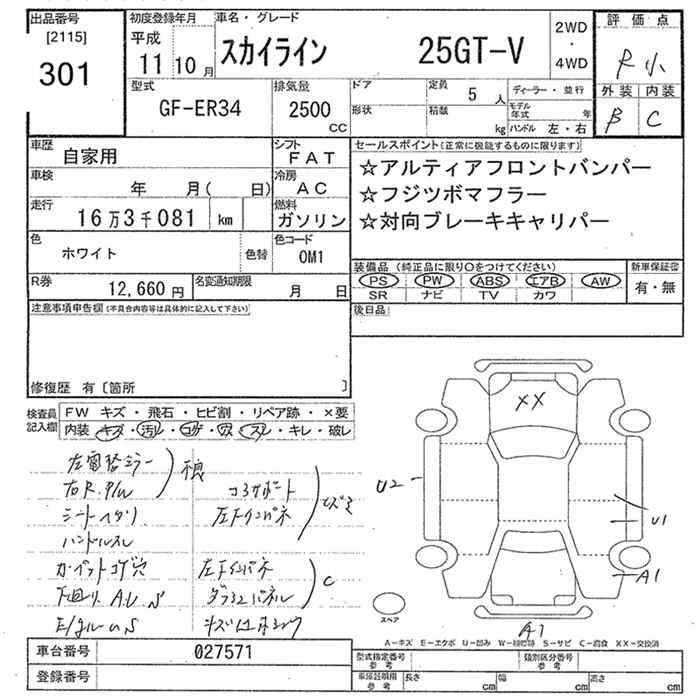 出品番号 初度登録年月 車名・グレード 2WD・4WD 評価点
[2115] 平成
301 11 10月 スカイライン 25GT-V R小
型式 排気量 ドア 定員 5人 ディーラー・並行 外装 内装
GF-ER34 2500cc 形状 積載 kg モデル年式 年 ハンドル 左・右 B C
車歴 自家用 シフト FAT セールスポイント(正常に機能するものに限ります)
車検 年 月( 日) 冷房 AC ☆アルティアフロントバンパー
☆フジツボマフラー
走行 16万3千081 km 燃料 ガソリン ☆対向ブレーキキャリパー
色 ホワイト 色替 色コード 0M1
装備品(純正品に限り〇をつけてください) 新車保証書
R券 12,660円 名変通知期限 月 日 PS PW ABS エアB AW 有・無
SR ナビ TV カワ
注意事項申告欄(不具合内容等は具体的に記入して下さい) 後日品
修復歴 有〔箇所 〕
検査員記入欄 FW キズ・飛石・ヒビ割・リペア跡・×要
内装 キズ・汚レ・コゲ・穴・スレ・キレ・破レ
XX
左電格ミラー
右R.P/W
コアサポート
シートヘタリ 左下インパネ
ハンドルスレ
U2
U1
A1
カーペットコゲ穴
C
下回り A.U S
スペア
A1
A-キズ E-エクボ U-凹み W-補修跡 S-サビ C-腐食 XX-交換済
車台番号 027571 型式指定番号 参考 類別区分番号 参考
登録番号 車庫証明用 参考 長さ cm 幅 cm 高さ cm